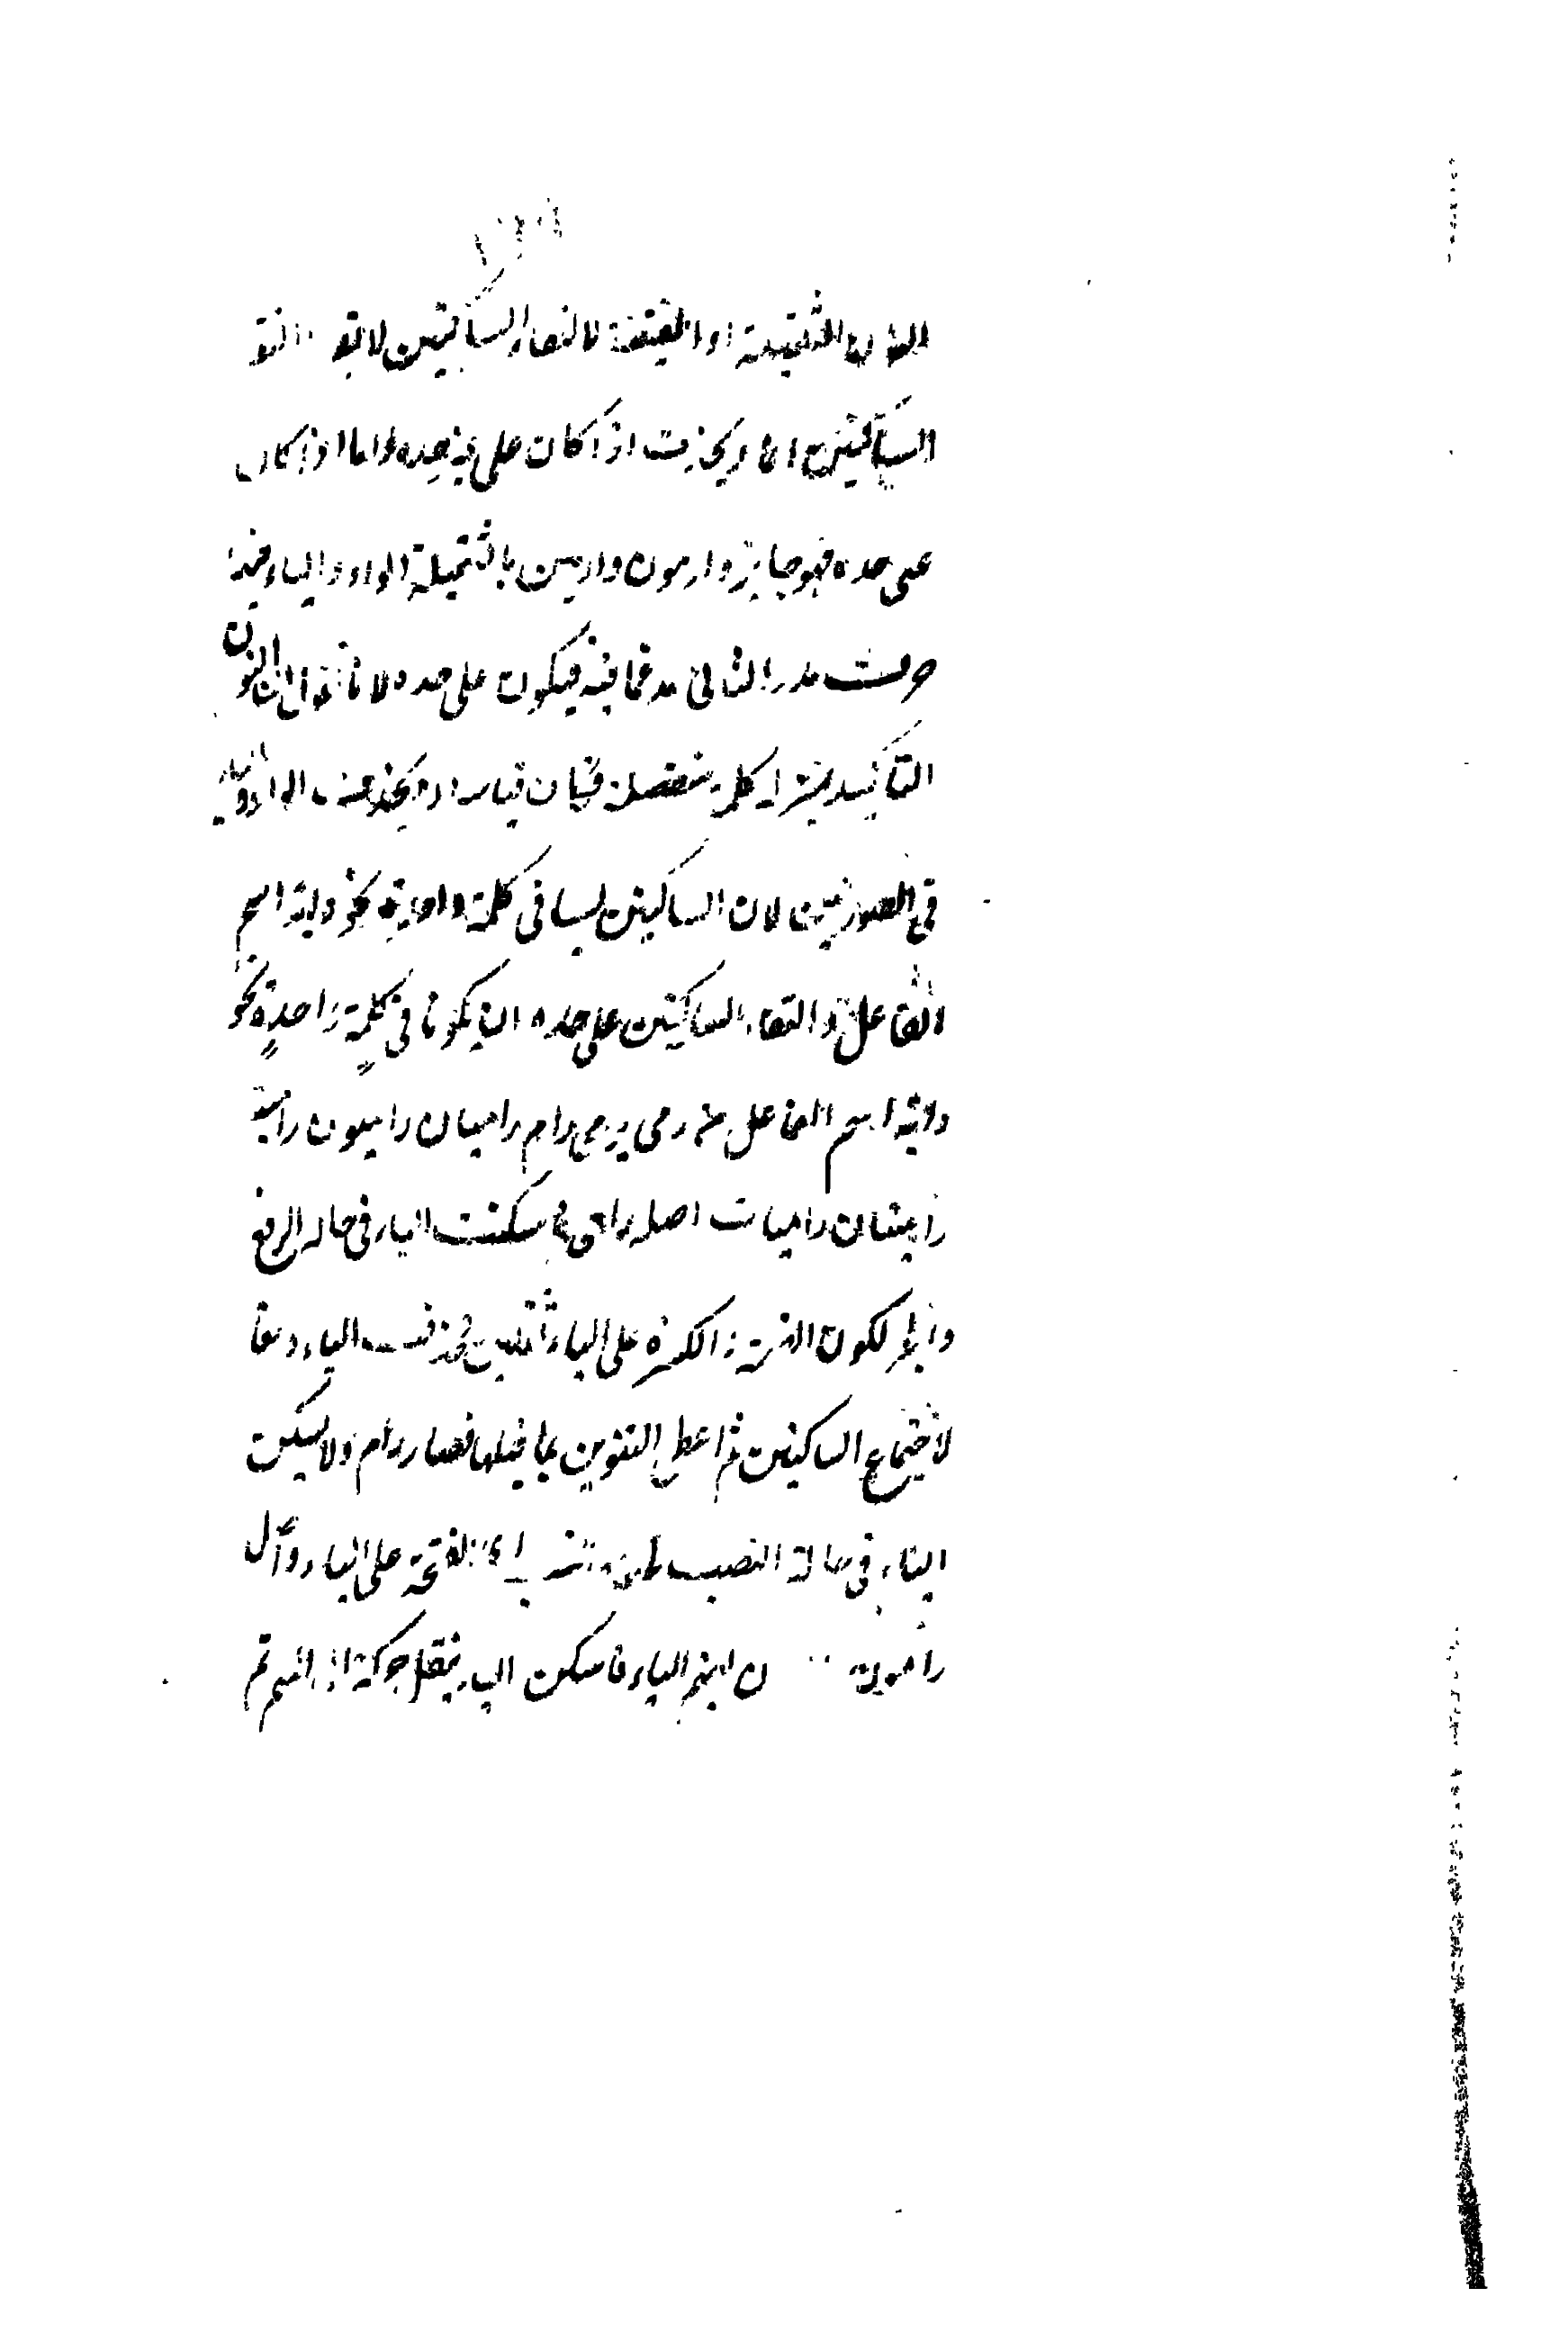 النون الثقيلة او الخفيفة لالتقاء الساكنين لا يقو التقو
الساكنين انما يحذف اذا كان على غير حده واما اذا كان
على حده فهو جايز وارمون وارمين بالثقيلة الواو والياء فيه
حرف مد والثاني مدغما فيه فيكون على حده لانا نقول ان النون
التأكيد بمنزلة كلمة منفصلة فكان قياسا ان يحذف الواو والياء
في الصورتين لان الساكنين ليسا في كلمة واحدة نحو دابة اسم
الفاعل والتقاء الساكنين على حده ان يكونا في كلمة واحدة نحو
دابة اسم الفاعل من رمى يرمى رام راميان راميون رامية
راميتان راميات اصله رامى فاسكنت الياء في حالة الرفع
والجر لكون الضمة والكسرة على الياء ثقيلتين فحذفت الياء دفعا
لاجتماع الساكنين ثم اعطى التنوين بما قبلها فصار رام ولا يسكن
الياء في حالة النصب لخفة الفتحة على الياء واصل
رامون ن بضم الياء فاسكن الياء بنقل حركة الى الميم ثم